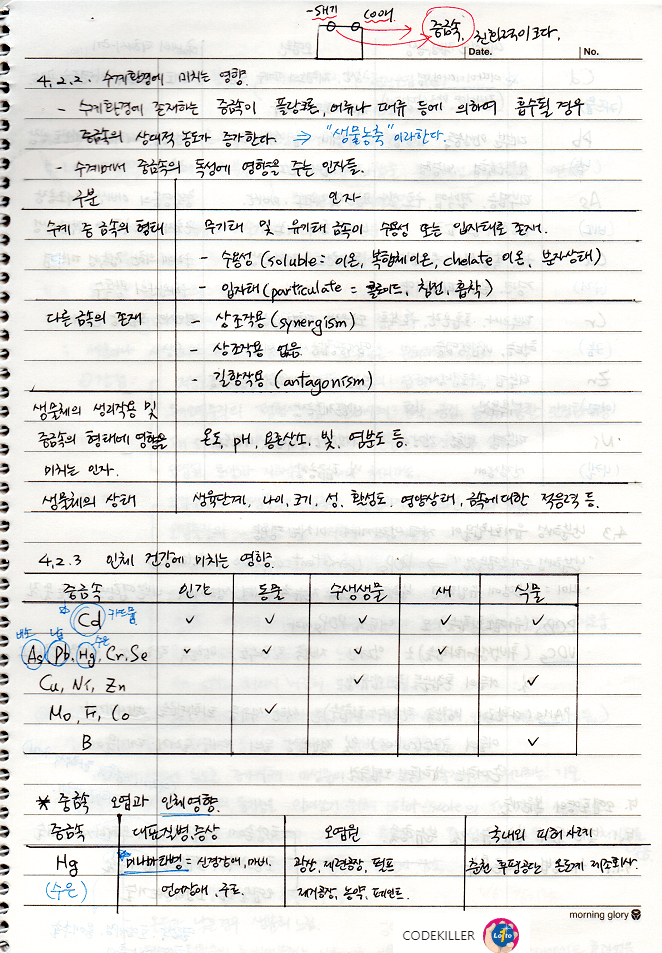 중금속, 친화력이 크다.
Date. No.
4.2.2. 수계환경에 미치는 영향.
- 수계환경에 존재하는 중금속이 플랑크톤, 어류나 패류 등에 의하여 흡수될 경우
중금속의 상대적 농도가 증가한다. ⇒ "생물농축"이라한다.
- 수계에서 중금속의 독성에 영향을 주는 인자들.
구분 인자
수계 중 금속의 형태 무기태 및 유기태 금속이 수용성 또는 입자태로 존재.
- 수용성 (soluble = 이온, 복합체이온, chelate 이온, 분자상태)
- 입자태 (particulate = 콜로이드, 침전, 흡착)
다른 금속의 존재 - 상조작용 (synergism)
- 상조작용 없음
- 길항작용 (antagonism)
생물체의 생리작용 및
중금속의 형태에 영향을 온도, pH, 용존산소, 빛, 염분도 등.
미치는 인자.
생물체의 상태 생육단계, 나이, 크기, 성, 활성도, 영양상태, 금속에 대한 적응력 등.
4.2.3 인체 건강에 미치는 영향.
중금속 인간 동물 수생생물 새 식물
Cd 카드뮴 ✓ ✓ ✓ ✓ ✓
비소 납 수은
As, Pb, Hg, Cr, Se ✓ ✓ ✓ ✓ ✓
Cu, Ni, Zn ✓ ✓
Mo, F, Co ✓
B ✓
* 중금속 오염과 인체영향.
중금속 대표질병, 증상 오염원 국내외 피해 사례
Hg 미나마타병 = 신경장애, 마비. 광산, 제련공장, 펄프 춘천 후평공단 온도계 제조회사.
(수은) 언어장애 주로. 제지공장, 농약, 페인트.
morning glory
CODEKILLER
Lotto